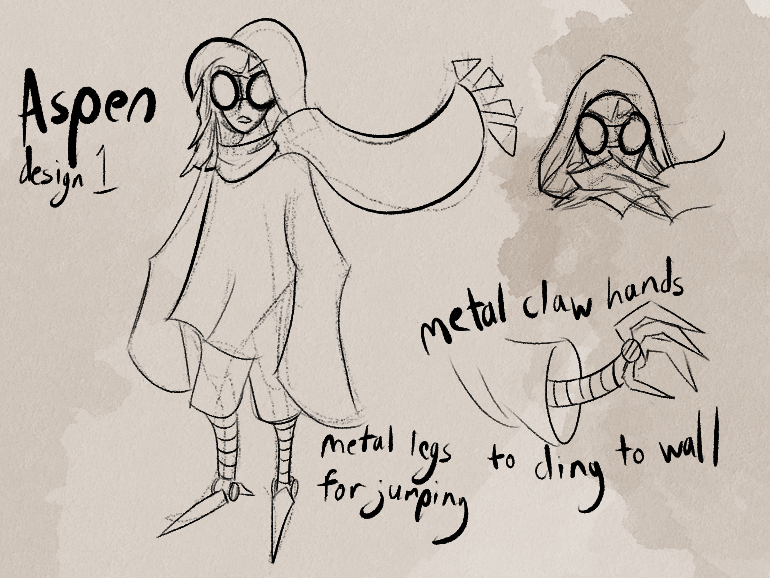 Aspen
design 1
metal claw hands
to cling to wall
metal legs
for jumping